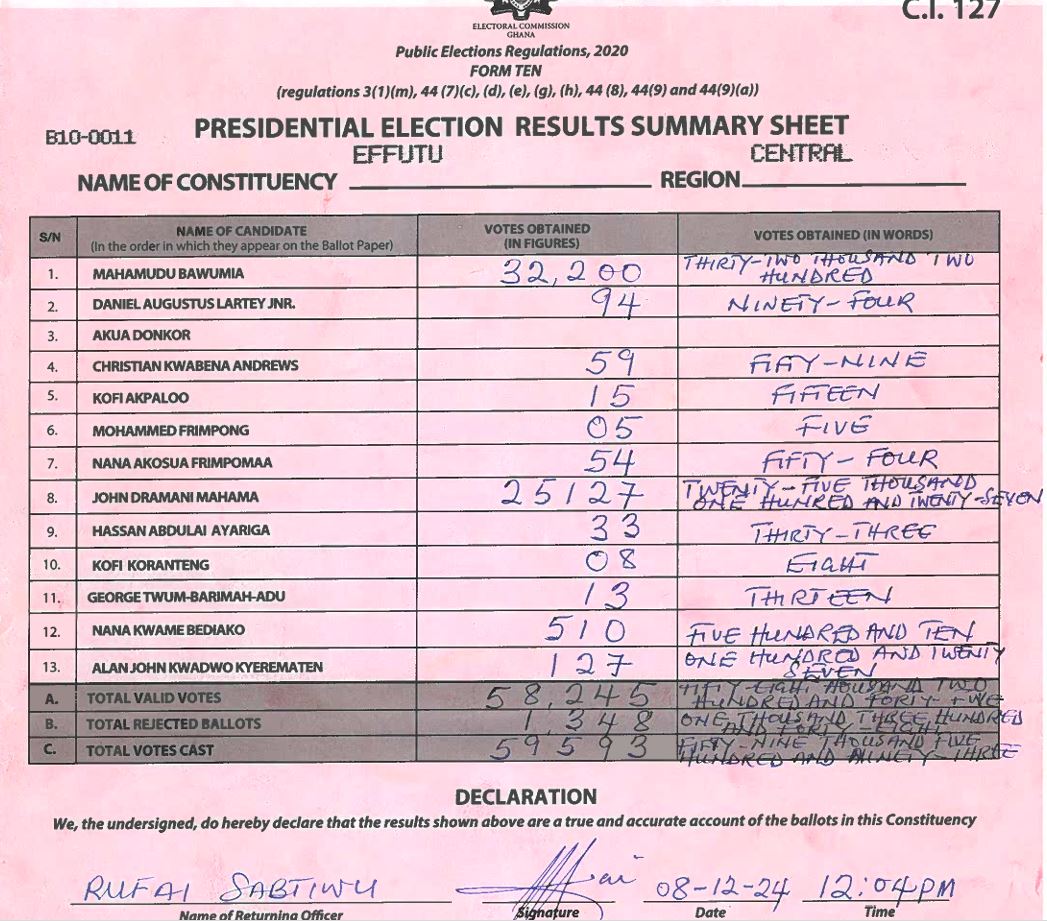 C.I. 127
ELECTORAL COMMISSION
GHANA
Public Elections Regulations, 2020
FORM TEN
(regulations 3(1)(m), 44 (7)(c), (d), (e), (g), (h), 44 (8), 44(9) and 44(9)(a))
B10-0011
PRESIDENTIAL ELECTION RESULTS SUMMARY SHEET
NAME OF CONSTITUENCY EFFUTU REGION CENTRAL
S/N NAME OF CANDIDATE (In the order in which they appear on the Ballot Paper) VOTES OBTAINED (IN FIGURES) VOTES OBTAINED (IN WORDS)
1. MAHAMUDU BAWUMIA 32,200 THIRTY-TWO THOUSAND TWO HUNDRED
2. DANIEL AUGUSTUS LARTEY JNR. 94 NINETY-FOUR
3. AKUA DONKOR
4. CHRISTIAN KWABENA ANDREWS 59 FIFY-NINE
5. KOFI AKPALOO 15 FIFTEEN
6. MOHAMMED FRIMPONG 05 FIVE
7. NANA AKOSUA FRIMPOMAA 54 FIFTY-FOUR
8. JOHN DRAMANI MAHAMA 25127 TWENTY-FIVE THOUSAND ONE HUNRED AND TWENTY-SEVEN
9. HASSAN ABDULAI AYARIGA 33 THIRTY-THREE
10. KOFI KORANTENG 08 EIGHT
11. GEORGE TWUM-BARIMAH-ADU 13 THIRTEEN
12. NANA KWAME BEDIAKO 510 FIVE HUNDRED AND TEN
13. ALAN JOHN KWADWO KYEREMATEN 127 ONE HUNDRED AND TWENTY SEVEN
A. TOTAL VALID VOTES 58,245 FIFTY-EIGHT THOUSAND TWO HUNDRED AND FORTY-FIVE
B. TOTAL REJECTED BALLOTS 1,348 ONE THOUSAND THREE HUNDRED AND FORTY-EIGHT
C. TOTAL VOTES CAST 59593 FIFTY-NINE THOUSAND FIVE HUNDRED AND NINETY-THREE
DECLARATION
We, the undersigned, do hereby declare that the results shown above are a true and accurate account of the ballots in this Constituency
RUFAI SABTIWU 08-12-24 12:04PM
Name of Returning Officer Signature Date Time